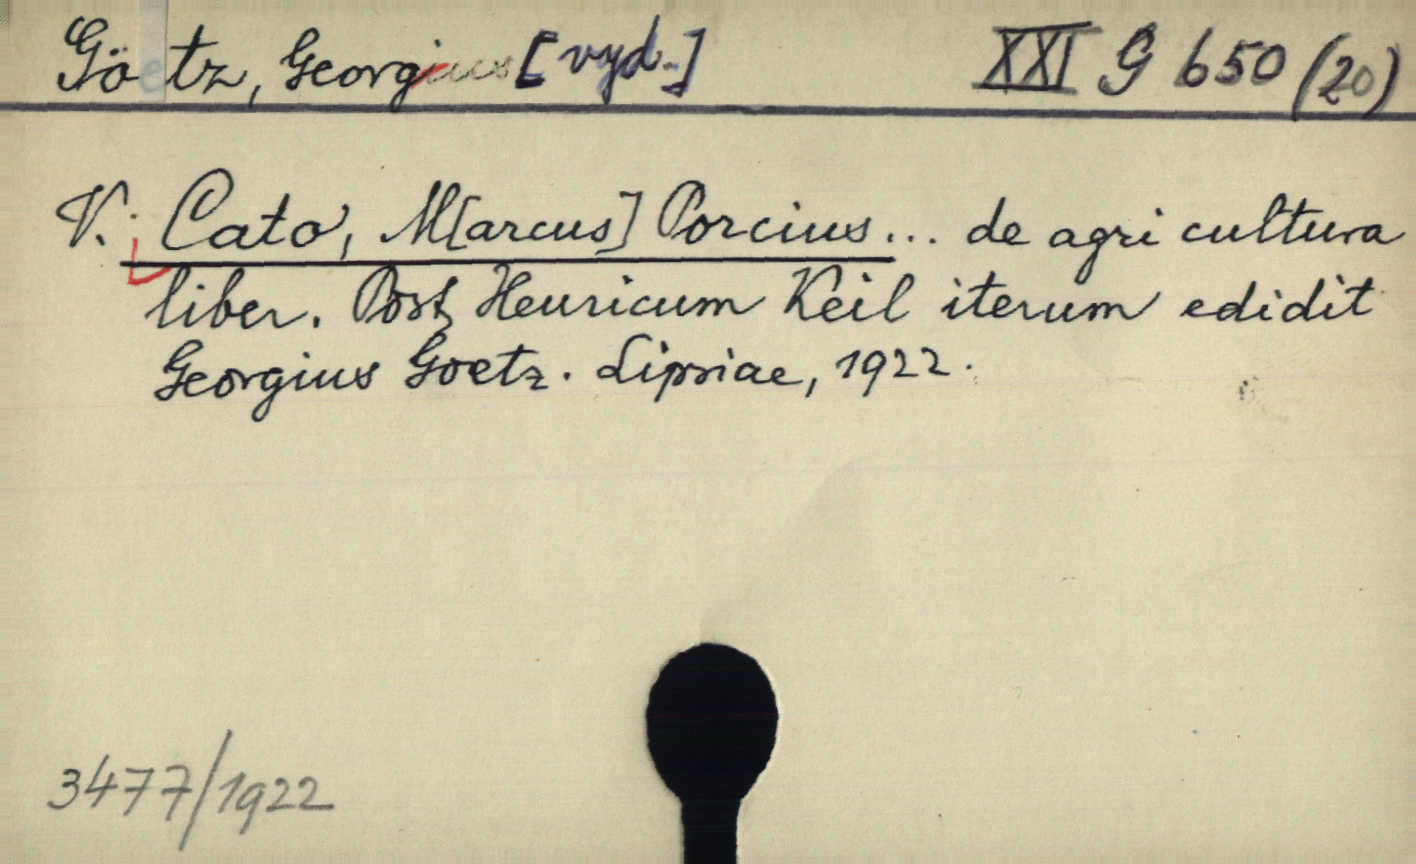 Göetz, Georgius [vyd.] XXI G 650 (20)
V. Cato, M[arcus] Porcius... de agri cultura
liber. Post Henricum Keil iterum edidit
Georgius Goetz. Lipsiae, 1922.
3477/1922